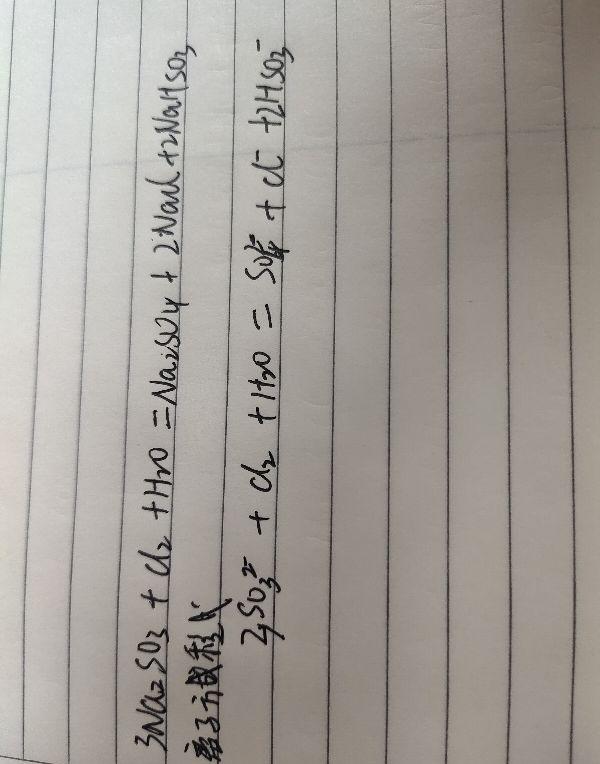 3Na₂SO₃ + Cl₂ + H₂O = Na₂SO₄ + 2NaCl + 2NaHSO₃
离子方程式
SO₃²⁻ + Cl₂ + H₂O = SO₄²⁻ + Cl⁻ + 2HSO₃⁻